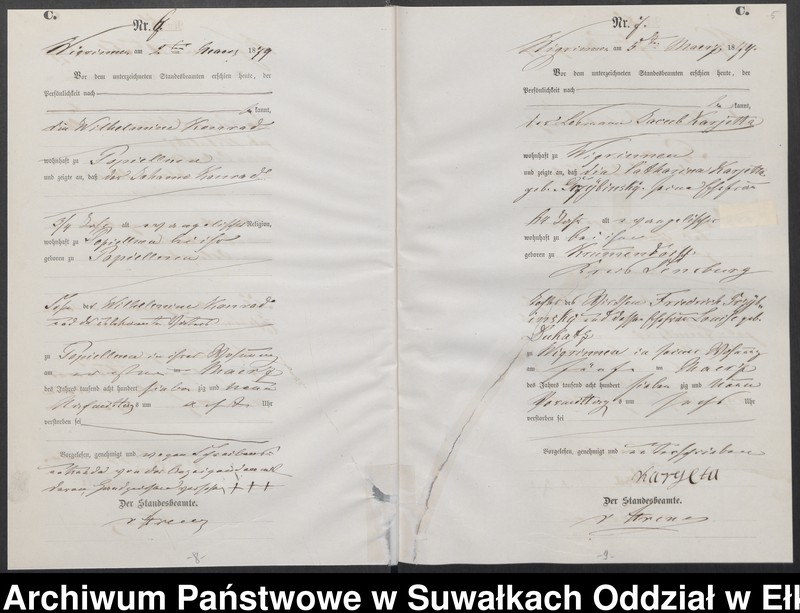 C.
Nr. 6.
am 2ten Maerz 1879
Vor dem unterzeichneten Standesbeamten erschien heute, der
Persönlichkeit nach
kannt,
die Wilhelmine Konrad
wohnhaft zu Popiellnen
und zeigte an, daß der Johann Konrad
3/4 Jahr alt evangelischer Religion,
wohnhaft zu Popiellnen bei ihr
geboren zu Popiellnen
Sohn der Wilhelmine Konrad
zu Popiellnen in ihrer Wohnung
am ersten Maerz
des Jahres tausend acht hundert sieben zig und neun
Nachmittags um acht Uhr
verstorben sei
Vorgelesen, genehmigt und wegen Schreibens-
+++
Der Standesbeamte.
-8-
C.
5
Nr. 7.
am 5ten Maerz 1879.
Vor dem unterzeichneten Standesbeamten erschien heute, der
Persönlichkeit nach
kannt,
der Jacob Karjetta
wohnhaft zu Wigrinnen
und zeigte an, daß die Catharina Karjetta
geb. seine Ehefrau
alt evangelischer
wohnhaft zu bei ihm
geboren zu Krummendorf
Kreis Sensburg
Tochter des Friedrich
und dessen Ehefrau Louise geb.
zu Wigrinnen in seiner Wohnung
am fünf Maerz
des Jahres tausend acht hundert sieben zig und neun
Vormittags um sechs Uhr
verstorben sei
Vorgelesen, genehmigt und unterschrieben
Der Standesbeamte.
-9-
Archiwum Państwowe w Suwałkach Oddział w Eł